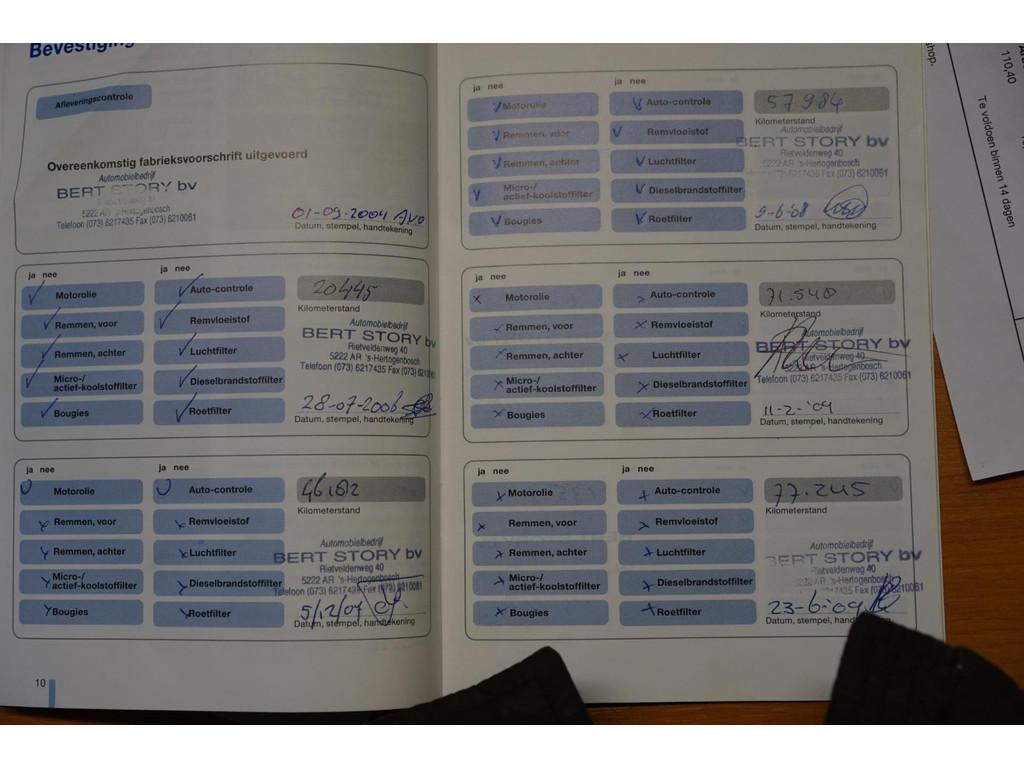 Bevestiging
Afleveringscontrole
Overeenkomstig fabrieksvoorschrift uitgevoerd
Automobielbedrijf
BERT STORY bv
5222 AR 's-Hertogenbosch
Telefoon (073) 6217435 Fax (073) 6210061
01-09-2004
Datum, stempel, handtekening
ja nee
ja nee
Motorolie
Auto-controle
20445
Kilometerstand
Remmen, voor
Remvloeistof
Automobielbedrijf
BERT STORY bv
Rietveldenweg 40
Remmen, achter
Luchtfilter
5222 AR 's-Hertogenbosch
Telefoon (073) 6217435 Fax (073) 621
Micro-/
actief-koolstoffilter
Dieselbrandstoffilter
Bougies
Roetfilter
Datum, stempel, handtekening
ja nee
ja nee
Motorolie
Auto-controle
Kilometerstand
Remmen, voor
Remvloeistof
Automobielbedrijf
BERT STORY bv
Remmen, achter
Luchtfilter
Rietveldenweg 40
5222 AR 's-Hertogenbosch
Micro-/
actief-koolstoffilter
Dieselbrandstoffilter
Telefoon (073) 6217435 Fax (073) 6210061
Bougies
Roetfilter
5/12/07
Datum, stempel, handtekening
10
ja nee
ja nee
Motorolie
Auto-controle
57984
Kilometerstand
Remmen, voor
Remvloeistof
Automobielbedrijf
BERT STORY bv
Rietveldenweg 40
Remmen, achter
Luchtfilter
5222 AR 's-Hertogenbosch
Fax (073) 6210061
Micro-/
actief-koolstoffilter
Dieselbrandstoffilter
Bougies
Roetfilter
9-6-'08
Datum, stempel, handtekening
ja nee
ja nee
Motorolie
Auto-controle
71.548
Kilometerstand
Remmen, voor
Remvloeistof
Automobielbedrijf
BERT STORY bv
Remmen, achter
Luchtfilter
Rietveldenweg 40
5222 AR 's-Hertogenbosch
Telefoon (073) 6217435 Fax (073) 6210061
Micro-/
actief-koolstoffilter
Dieselbrandstoffilter
Bougies
Roetfilter
11-2-'09
Datum, stempel, handtekening
ja nee
ja nee
Motorolie
Auto-controle
77.245
Kilometerstand
Remmen, voor
Remvloeistof
Automobielbedrijf
BERT STORY bv
Remmen, achter
Luchtfilter
Rietveldenweg 40
5222 AR 's-Hertogenbosch
Micro-/
actief-koolstoffilter
Dieselbrandstoffilter
Bougies
Roetfilter
23-6-09
Datum, stempel, handtekening
shop.
110,40
Te voldoen binnen 14 dagen